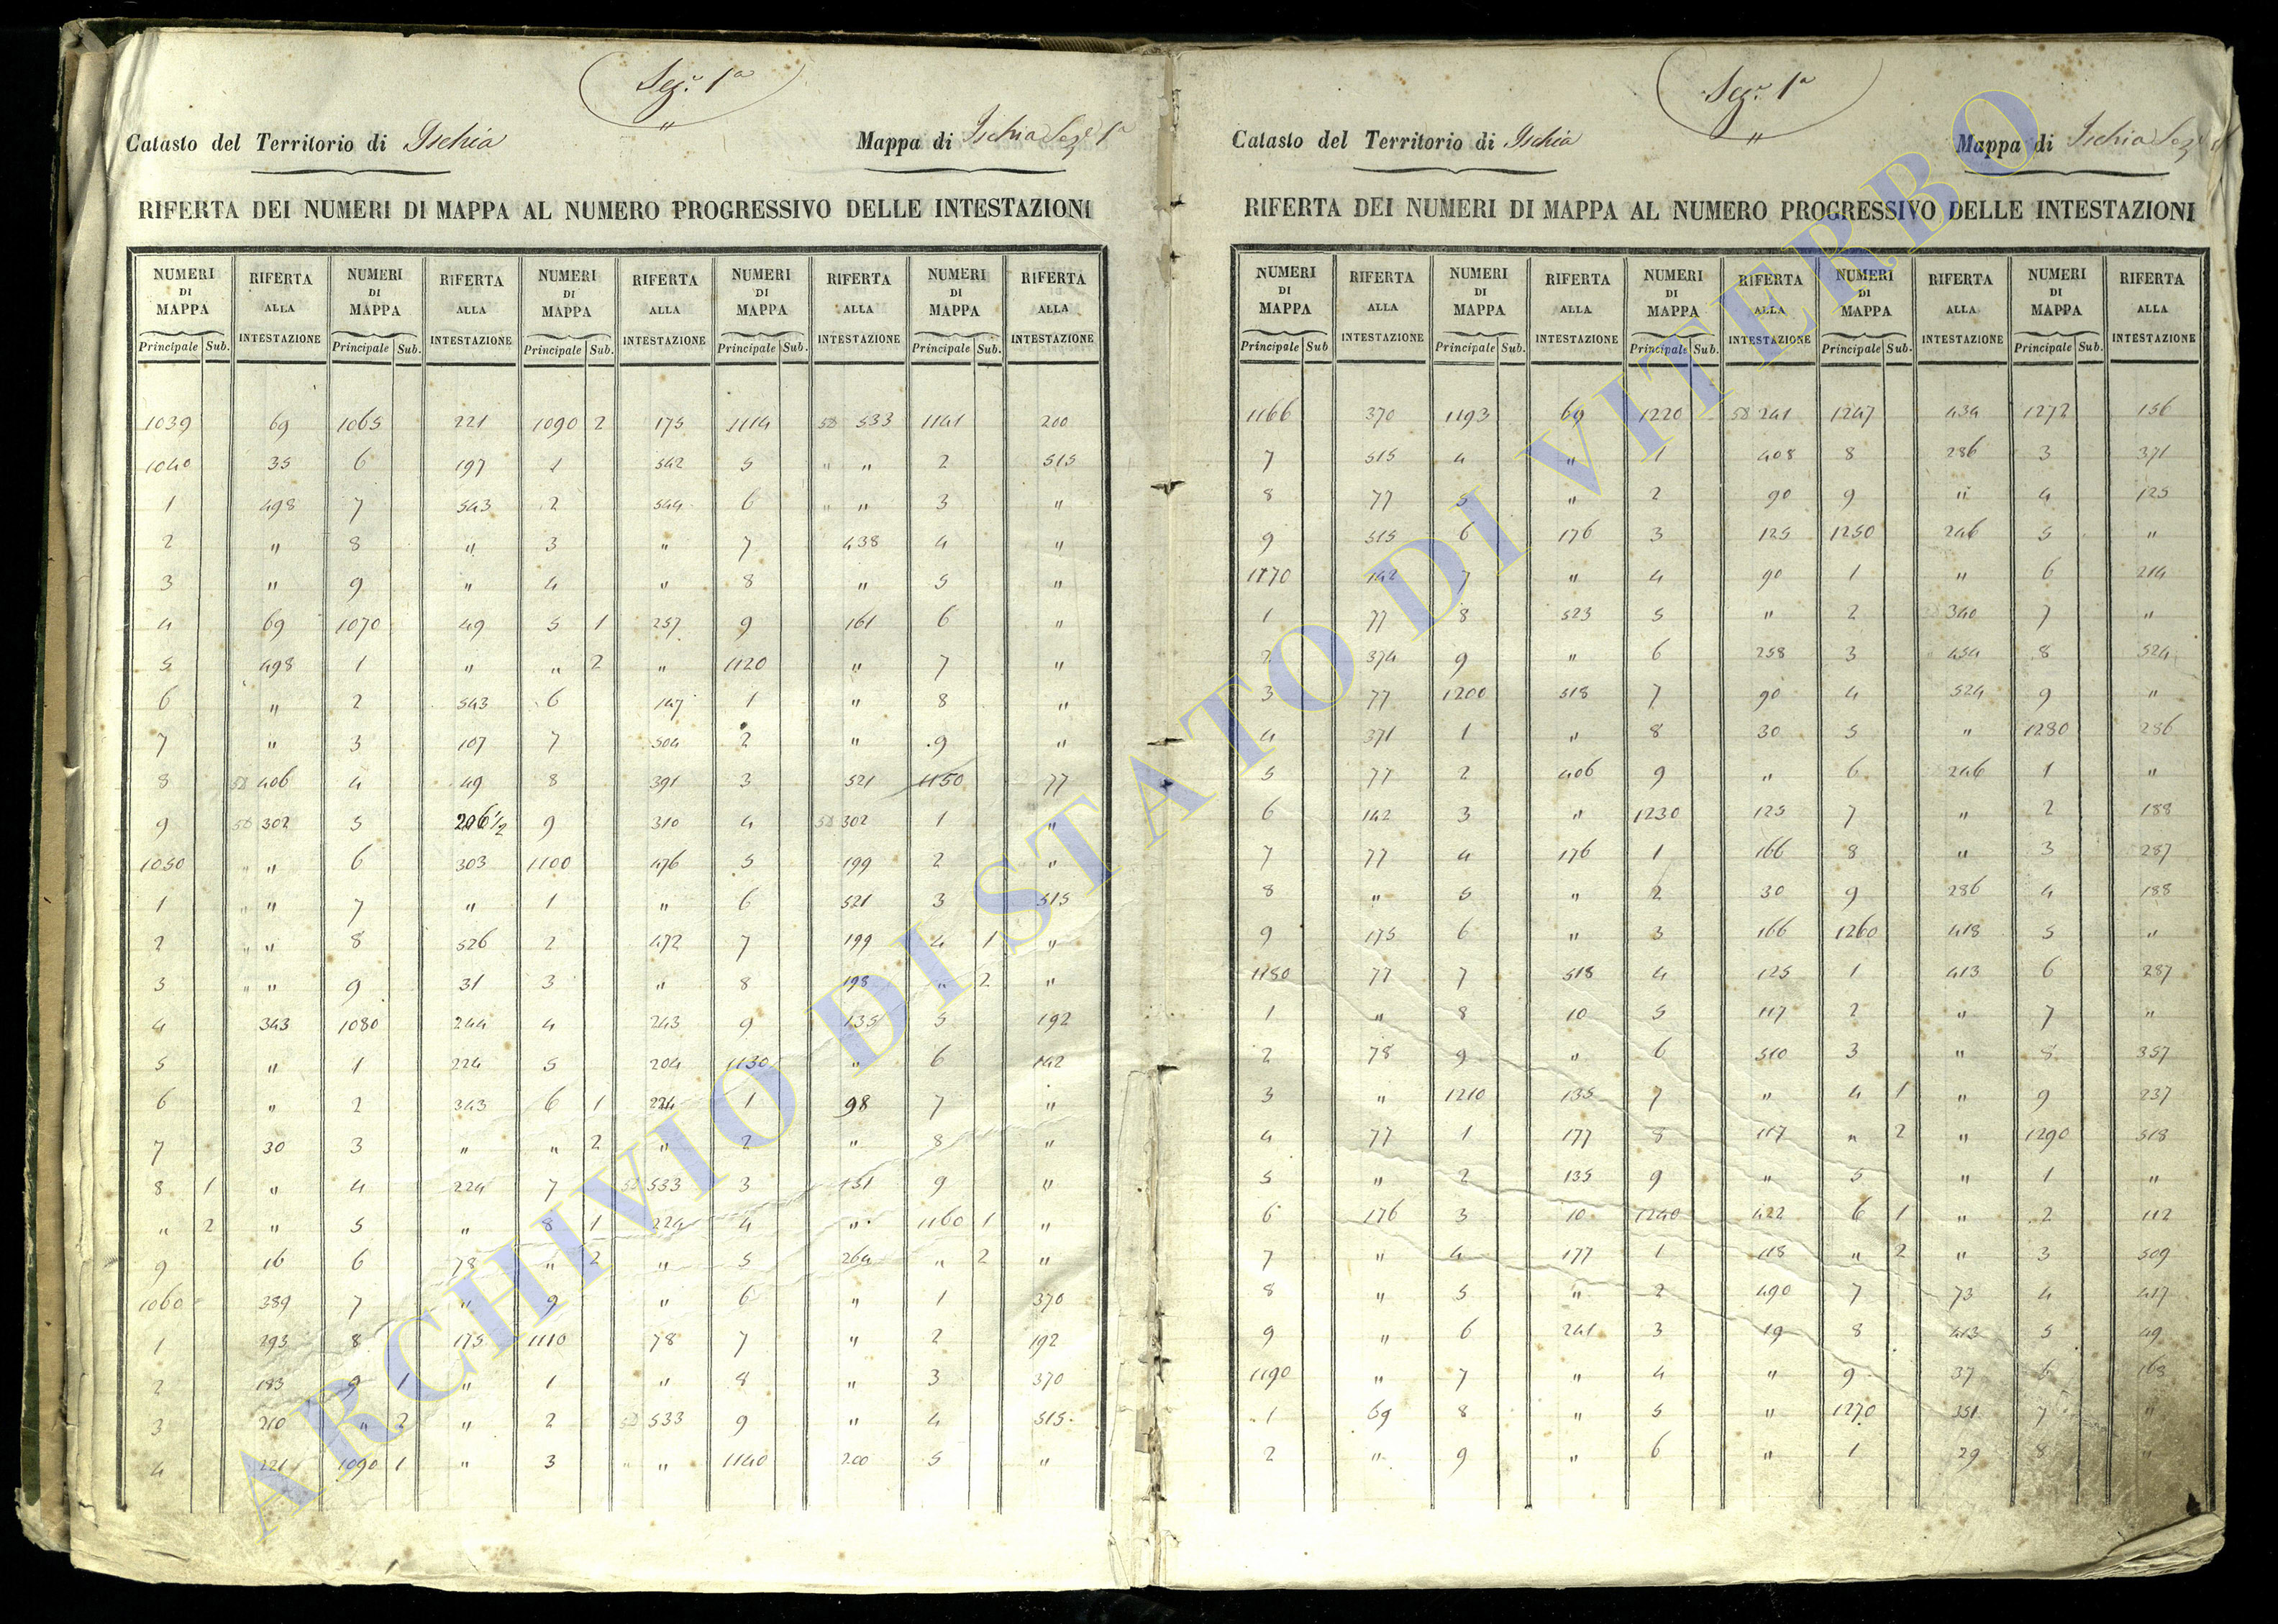 Sez.e 1a
"
Catasto del Territorio di Ischia Mappa di Ischia Sez.e 1a
RIFERTA DEI NUMERI DI MAPPA AL NUMERO PROGRESSIVO DELLE INTESTAZIONI
NUMERI DI MAPPA RIFERTA ALLA INTESTAZIONE NUMERI DI MAPPA RIFERTA ALLA INTESTAZIONE NUMERI DI MAPPA RIFERTA ALLA INTESTAZIONE NUMERI DI MAPPA RIFERTA ALLA INTESTAZIONE NUMERI DI MAPPA RIFERTA ALLA INTESTAZIONE
Principale Sub. Principale Sub. Principale Sub. Principale Sub. Principale Sub.
1039 69 1065 221 1090 2 175 1114 58 533 1141 200
1040 35 6 197 1 542 5 " " 2 515
1 498 7 543 2 544 6 " " 3 "
2 " 8 " 3 " 7 438 4 "
3 " 9 " 4 " 8 " 5 "
4 69 1070 49 5 1 257 9 161 6 "
5 498 1 " " 2 " 1120 " 7 "
6 " 2 543 6 147 1 " 8 "
7 " 3 107 7 504 2 " 9 "
8 58 406 4 49 8 391 3 521 1150 77
9 58 302 5 206 1/2 9 310 4 58 302 1 "
1050 " " 6 303 1100 476 5 199 2 "
1 " " 7 " 1 " 6 521 3 515
2 " " 8 526 2 472 7 199 4 1 "
3 " " 9 31 3 " 8 198 " 2 "
4 343 1080 244 4 243 9 135 5 192
5 " 1 224 5 204 1130 " 6 142
6 " 2 343 6 1 224 1 98 7 "
7 30 3 " " 2 " 2 " 8 "
8 1 " 4 224 7 58 533 3 151 9 "
" 2 " 5 " 8 1 224 4 " 1160 1 "
9 16 6 78 " 2 " 5 264 " 2 "
1060 389 7 " 9 " 6 " 1 370
1 293 8 175 1110 78 7 " 2 192
2 183 9 1 " 1 " 8 " 3 370
3 210 " 2 " 2 58 533 9 " 4 515
4 221 1090 1 " 3 " " 1140 200 5 "
Sez.e 1a
"
Catasto del Territorio di Ischia Mappa di Ischia Sez.e
RIFERTA DEI NUMERI DI MAPPA AL NUMERO PROGRESSIVO DELLE INTESTAZIONI
NUMERI DI MAPPA RIFERTA ALLA INTESTAZIONE NUMERI DI MAPPA RIFERTA ALLA INTESTAZIONE NUMERI DI MAPPA RIFERTA ALLA INTESTAZIONE NUMERI DI MAPPA RIFERTA ALLA INTESTAZIONE NUMERI DI MAPPA RIFERTA ALLA INTESTAZIONE
Principale Sub Principale Sub. Principale Sub. Principale Sub. Principale Sub.
1166 370 1193 69 1220 58 241 1247 434 1272 156
7 515 4 " 1 408 8 286 3 371
8 77 5 " 2 90 9 " 4 125
9 515 6 176 3 125 1250 246 5 "
1170 142 7 " 4 90 1 " 6 214
1 77 8 523 5 " 2 340 7 "
2 374 9 " 6 258 3 454 8 524
3 77 1200 518 7 90 4 524 9 "
4 371 1 " 8 30 5 " 1280 286
5 77 2 406 9 " 6 246 1 "
6 142 3 " 1230 125 7 " 2 188
7 77 4 176 1 166 8 " 3 287
8 " 5 " 2 30 9 286 4 188
9 175 6 " 3 166 1260 418 5 "
1180 77 7 518 4 125 1 413 6 287
1 " 8 10 5 117 2 " 7 "
2 78 9 " 6 510 3 " 8 357
3 " 1210 135 7 " 4 1 " 9 237
4 77 1 177 8 117 " 2 " 1290 518
5 " 2 135 9 " 5 " 1 "
6 176 3 10 1240 422 6 1 " 2 112
7 " 4 177 1 118 " 2 " 3 509
8 " 5 " 2 490 7 73 4 417
9 " 6 241 3 19 8 413 5 49
1190 " 7 " 4 " 9 37 6 168
1 69 8 " 5 " 1270 351 7 "
2 " 9 " 6 " 1 29 8 "
ARCHIVIO DI STATO DI VITERBO